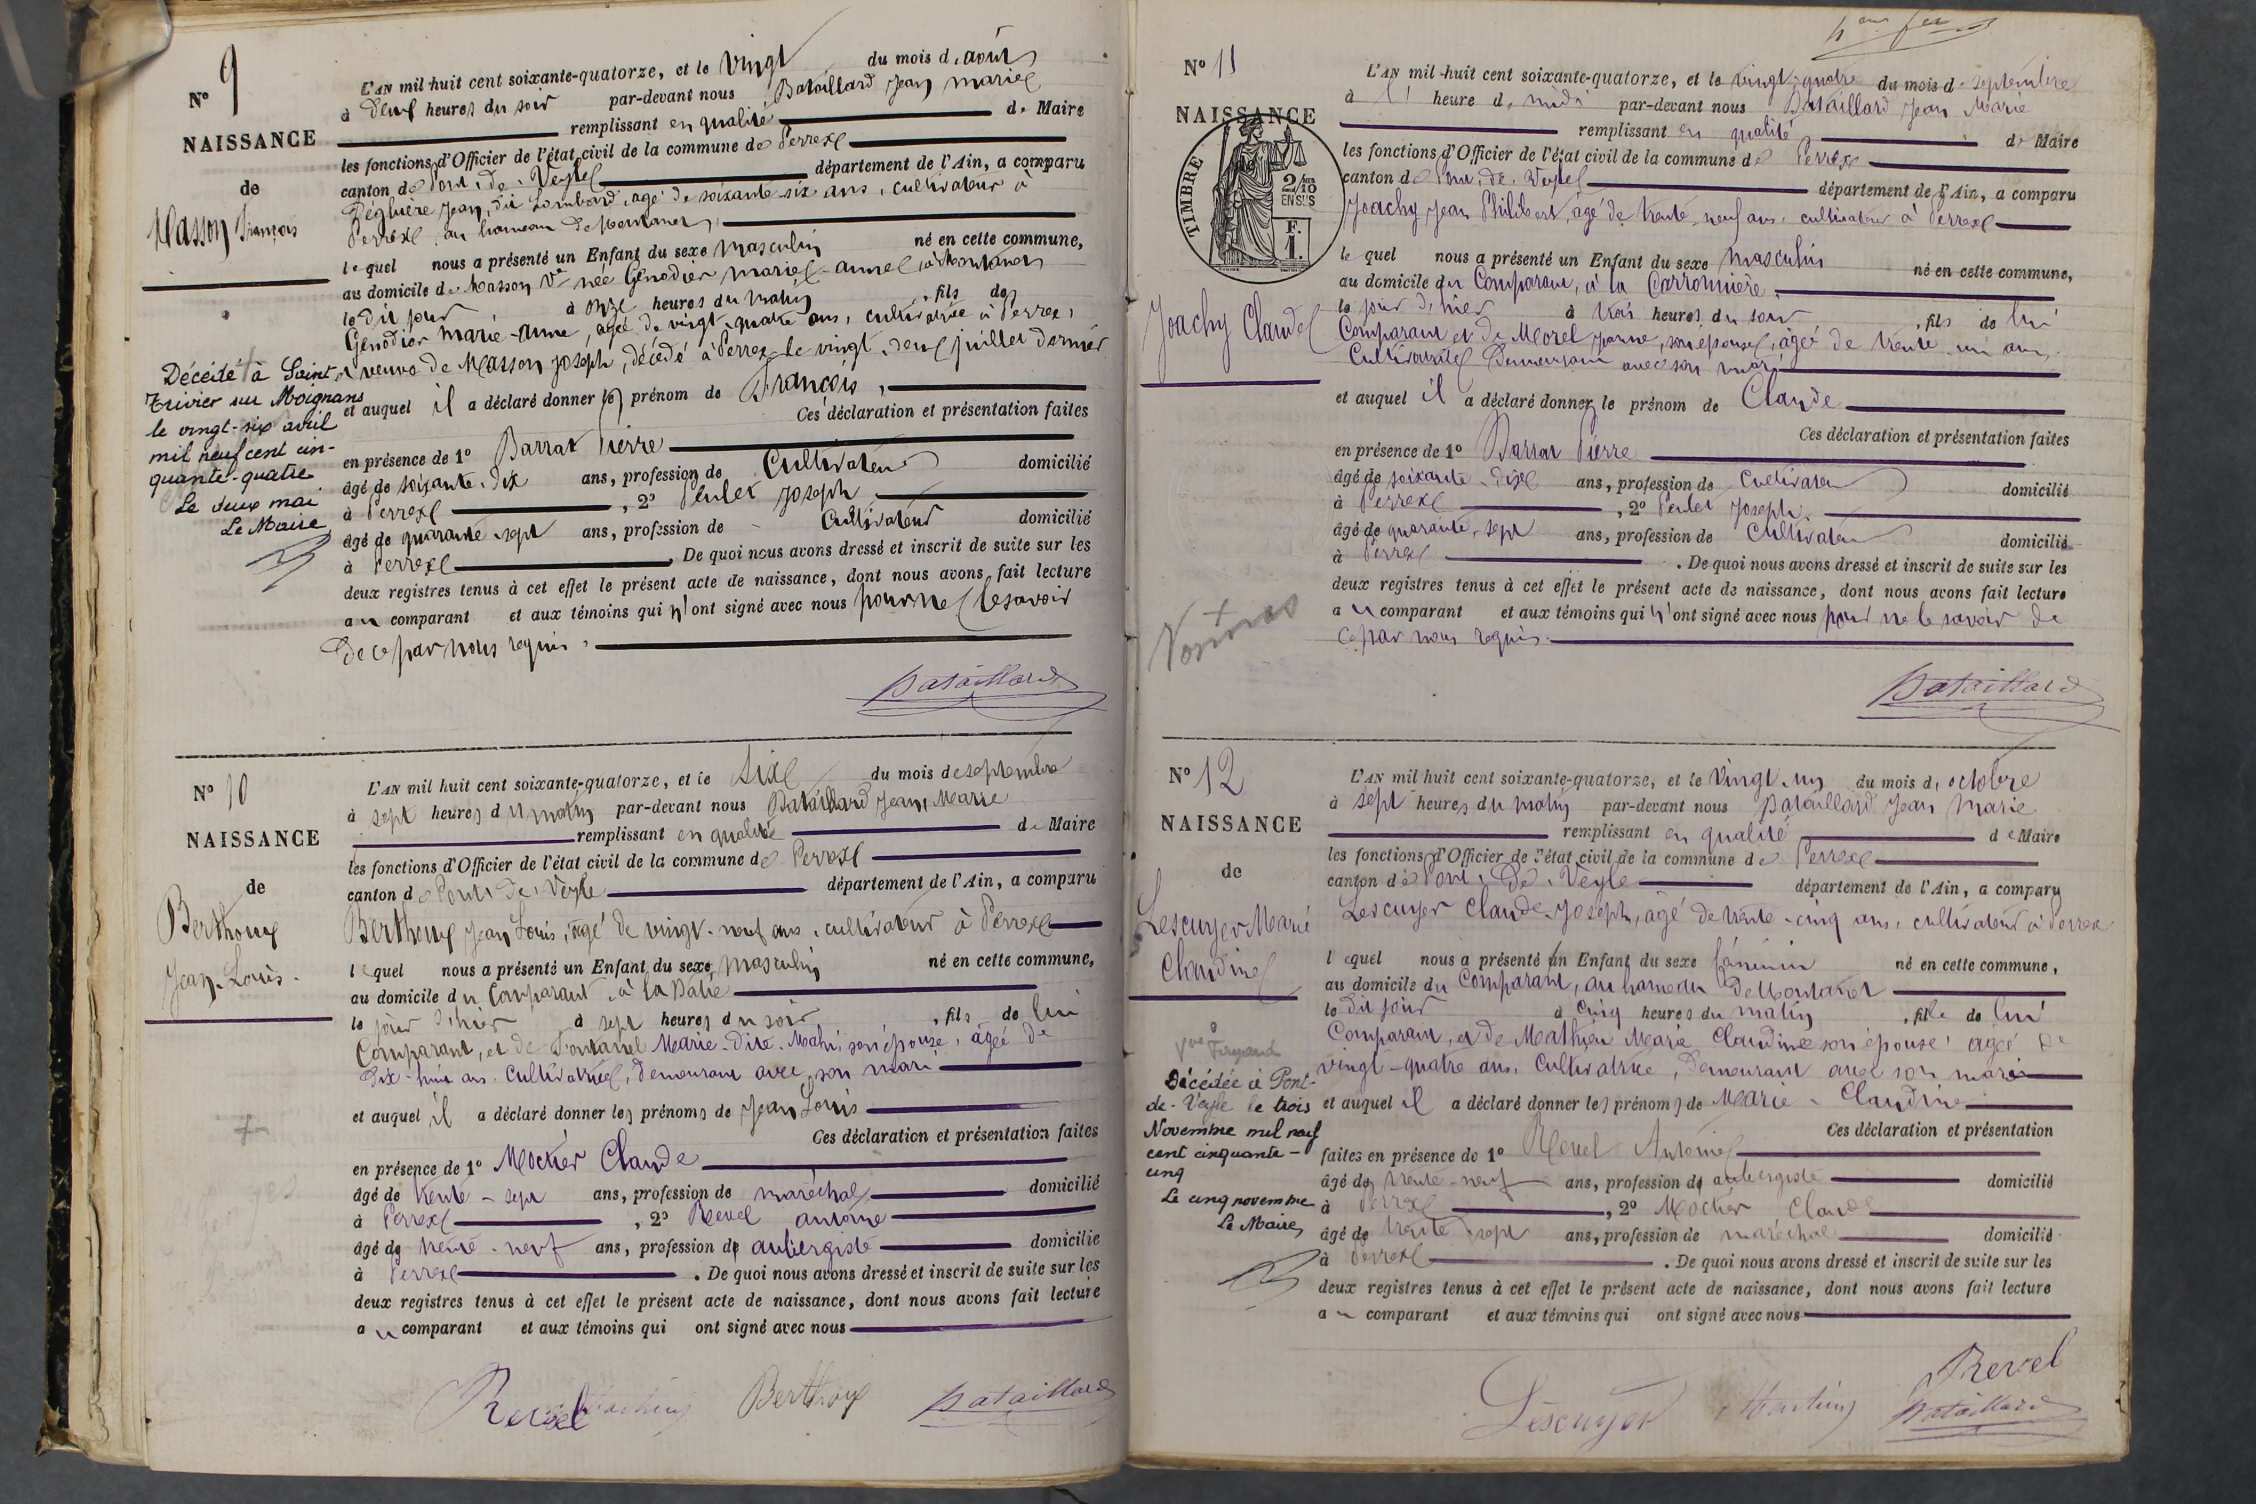 N° 9
NAISSANCE
de
Masson François
Décédé à Saint
Trivier sur Moignans
le vingt-six avril
mil neuf cent cin-
quante-quatre
Le deux mai
Le Maire
L'AN mil huit cent soixante-quatorze, et le vingt du mois d'août
à deux heures du soir par-devant nous Bataillard Jean Marie
remplissant en qualité de Maire
les fonctions d'Officier de l'état civil de la commune de Perrex
canton de Pont-de-Veyle département de l'Ain, a comparu
Jean, dit Lombard, agé de soixante-six ans, cultivateur à
Perrex, au hameau de Montanet,
lequel nous a présenté un Enfant du sexe masculin né en cette commune,
au domicile de Masson Ve née Genodier Marie-anne, à Montanet
le dit jour à onze heures du matin, fils de
Genodier Marie-anne, agée de vingt-quatre ans, cultivatrice à Perrex,
veuve de Masson Joseph, décédé à Perrex le vingt-deux juillet dernier
et auquel il a déclaré donner le prénom de François,
Ces déclaration et présentation faites
en présence de 1° Barrat Pierre
âgé de soixante-dix ans, profession de Cultivateur domicilié
à Perrex, 2° Peulet Joseph
âgé de quarante-sept ans, profession de Cultivateur domicilié
à Perrex. De quoi nous avons dressé et inscrit de suite sur les
deux registres tenus à cet effet le présent acte de naissance, dont nous avons fait lecture
au comparant et aux témoins qui n'ont signé avec nous pour ne le savoir
de ce par nous requis.
Bataillard
N° 10
NAISSANCE
de
Berthoux
Jean-Louis.
L'AN mil huit cent soixante-quatorze, et le six du mois de septembre
à sept heures du matin par-devant nous Bataillard Jean, Marie
remplissant en qualité de Maire
les fonctions d'Officier de l'état civil de la commune de Perrex
canton de Pont-de-Veyle département de l'Ain, a comparu
Berthoux Jean Louis, agé de vingt-neuf ans, cultivateur à Perrex
lequel nous a présenté un Enfant du sexe masculin né en cette commune,
au domicile du Comparant, à la
le jour d'hier à sept heures du soir, fils de lui
Comparant, et de Fontanel Marie-dite-Mahi, son épouse, agée de
dix-huit ans, Cultivatrice, demeurant avec son mari
et auquel il a déclaré donner les prénoms de Jean Louis
Ces déclaration et présentation faites
en présence de 1° Moctier Claude
âgé de trente-sept ans, profession de maréchal domicilié
à Perrex, 2° Revel antoine
âgé de trente-neuf ans, profession de aubergiste domicilié
à Perrex. De quoi nous avons dressé et inscrit de suite sur les
deux registres tenus à cet effet le présent acte de naissance, dont nous avons fait lecture
au comparant et aux témoins qui ont signé avec nous
Revel Berthoux Bataillard
N° 11
NAISSANCE
TIMBRE
2/10
EN SUS
F.
1.
Joachy Claude
L'AN mil huit cent soixante-quatorze, et le vingt-quatre du mois de septembre
à l' heure de midi par-devant nous Bataillard Jean Marie
remplissant en qualité de Maire
les fonctions d'Officier de l'état civil de la commune de Perrex
canton de Pont-de-Veyle département de l'Ain, a comparu
Joachy Jean Philibert, agé de trente-neuf ans, cultivateur à Perrex
lequel nous a présenté un Enfant du sexe masculin né en cette commune,
au domicile du Comparant, à la Carronnière,
le jour d'hier à trois heures du soir, fils de lui
Comparant et de Morel Jeanne, son épouse, agée de trente-un ans,
Cultivatrice demeurant avec son mari
et auquel il a déclaré donner le prénom de Claude
Ces déclaration et présentation faites
en présence de 1° Barrat Pierre
âgé de soixante-dix ans, profession de Cultivateur domicilié
à Perrex, 2° Peulet Joseph
âgé de quarante-sept ans, profession de Cultivateur domicilié
à Perrex. De quoi nous avons dressé et inscrit de suite sur les
deux registres tenus à cet effet le présent acte de naissance, dont nous avons fait lecture
au comparant et aux témoins qui n'ont signé avec nous pour ne le savoir de
ce par nous requis.
Bataillard
N° 12
NAISSANCE
de
Lescuyer Marie
Claudine
Décédée à Pont-
de-Veyle le trois
Novembre mil neuf
cent cinquante-
cinq
Le cinq novembre
Le Maire,
L'AN mil huit cent soixante-quatorze, et le vingt-un du mois d'octobre
à sept heures du matin par-devant nous Bataillard Jean Marie
remplissant en qualité de Maire
les fonctions d'Officier de l'état civil de la commune de Perrex
canton de Pont-de-Veyle département de l'Ain, a comparu
Lescuyer Claude-Joseph, agé de trente-cinq ans, cultivateur à Perrex
lequel nous a présenté un Enfant du sexe féminin né en cette commune,
au domicile du Comparant, au hameau de Montanet
le dit jour à cinq heures du matin, fille de lui
Comparant, et de Mathieu Marie Claudine son épouse, agée de
vingt-quatre ans, Cultivatrice, demeurant avec son mari
et auquel il a déclaré donner les prénoms de Marie-Claudine
Ces déclaration et présentation
faites en présence de 1° Revel Antoine
âgé de trente-neuf ans, profession de aubergiste domicilié
à Perrex, 2° Moctier Claude
âgé de trente-sept ans, profession de maréchal domicilié
à Perrex. De quoi nous avons dressé et inscrit de suite sur les
deux registres tenus à cet effet le présent acte de naissance, dont nous avons fait lecture
au comparant et aux témoins qui ont signé avec nous
Revel
Lescuyer Bataillard